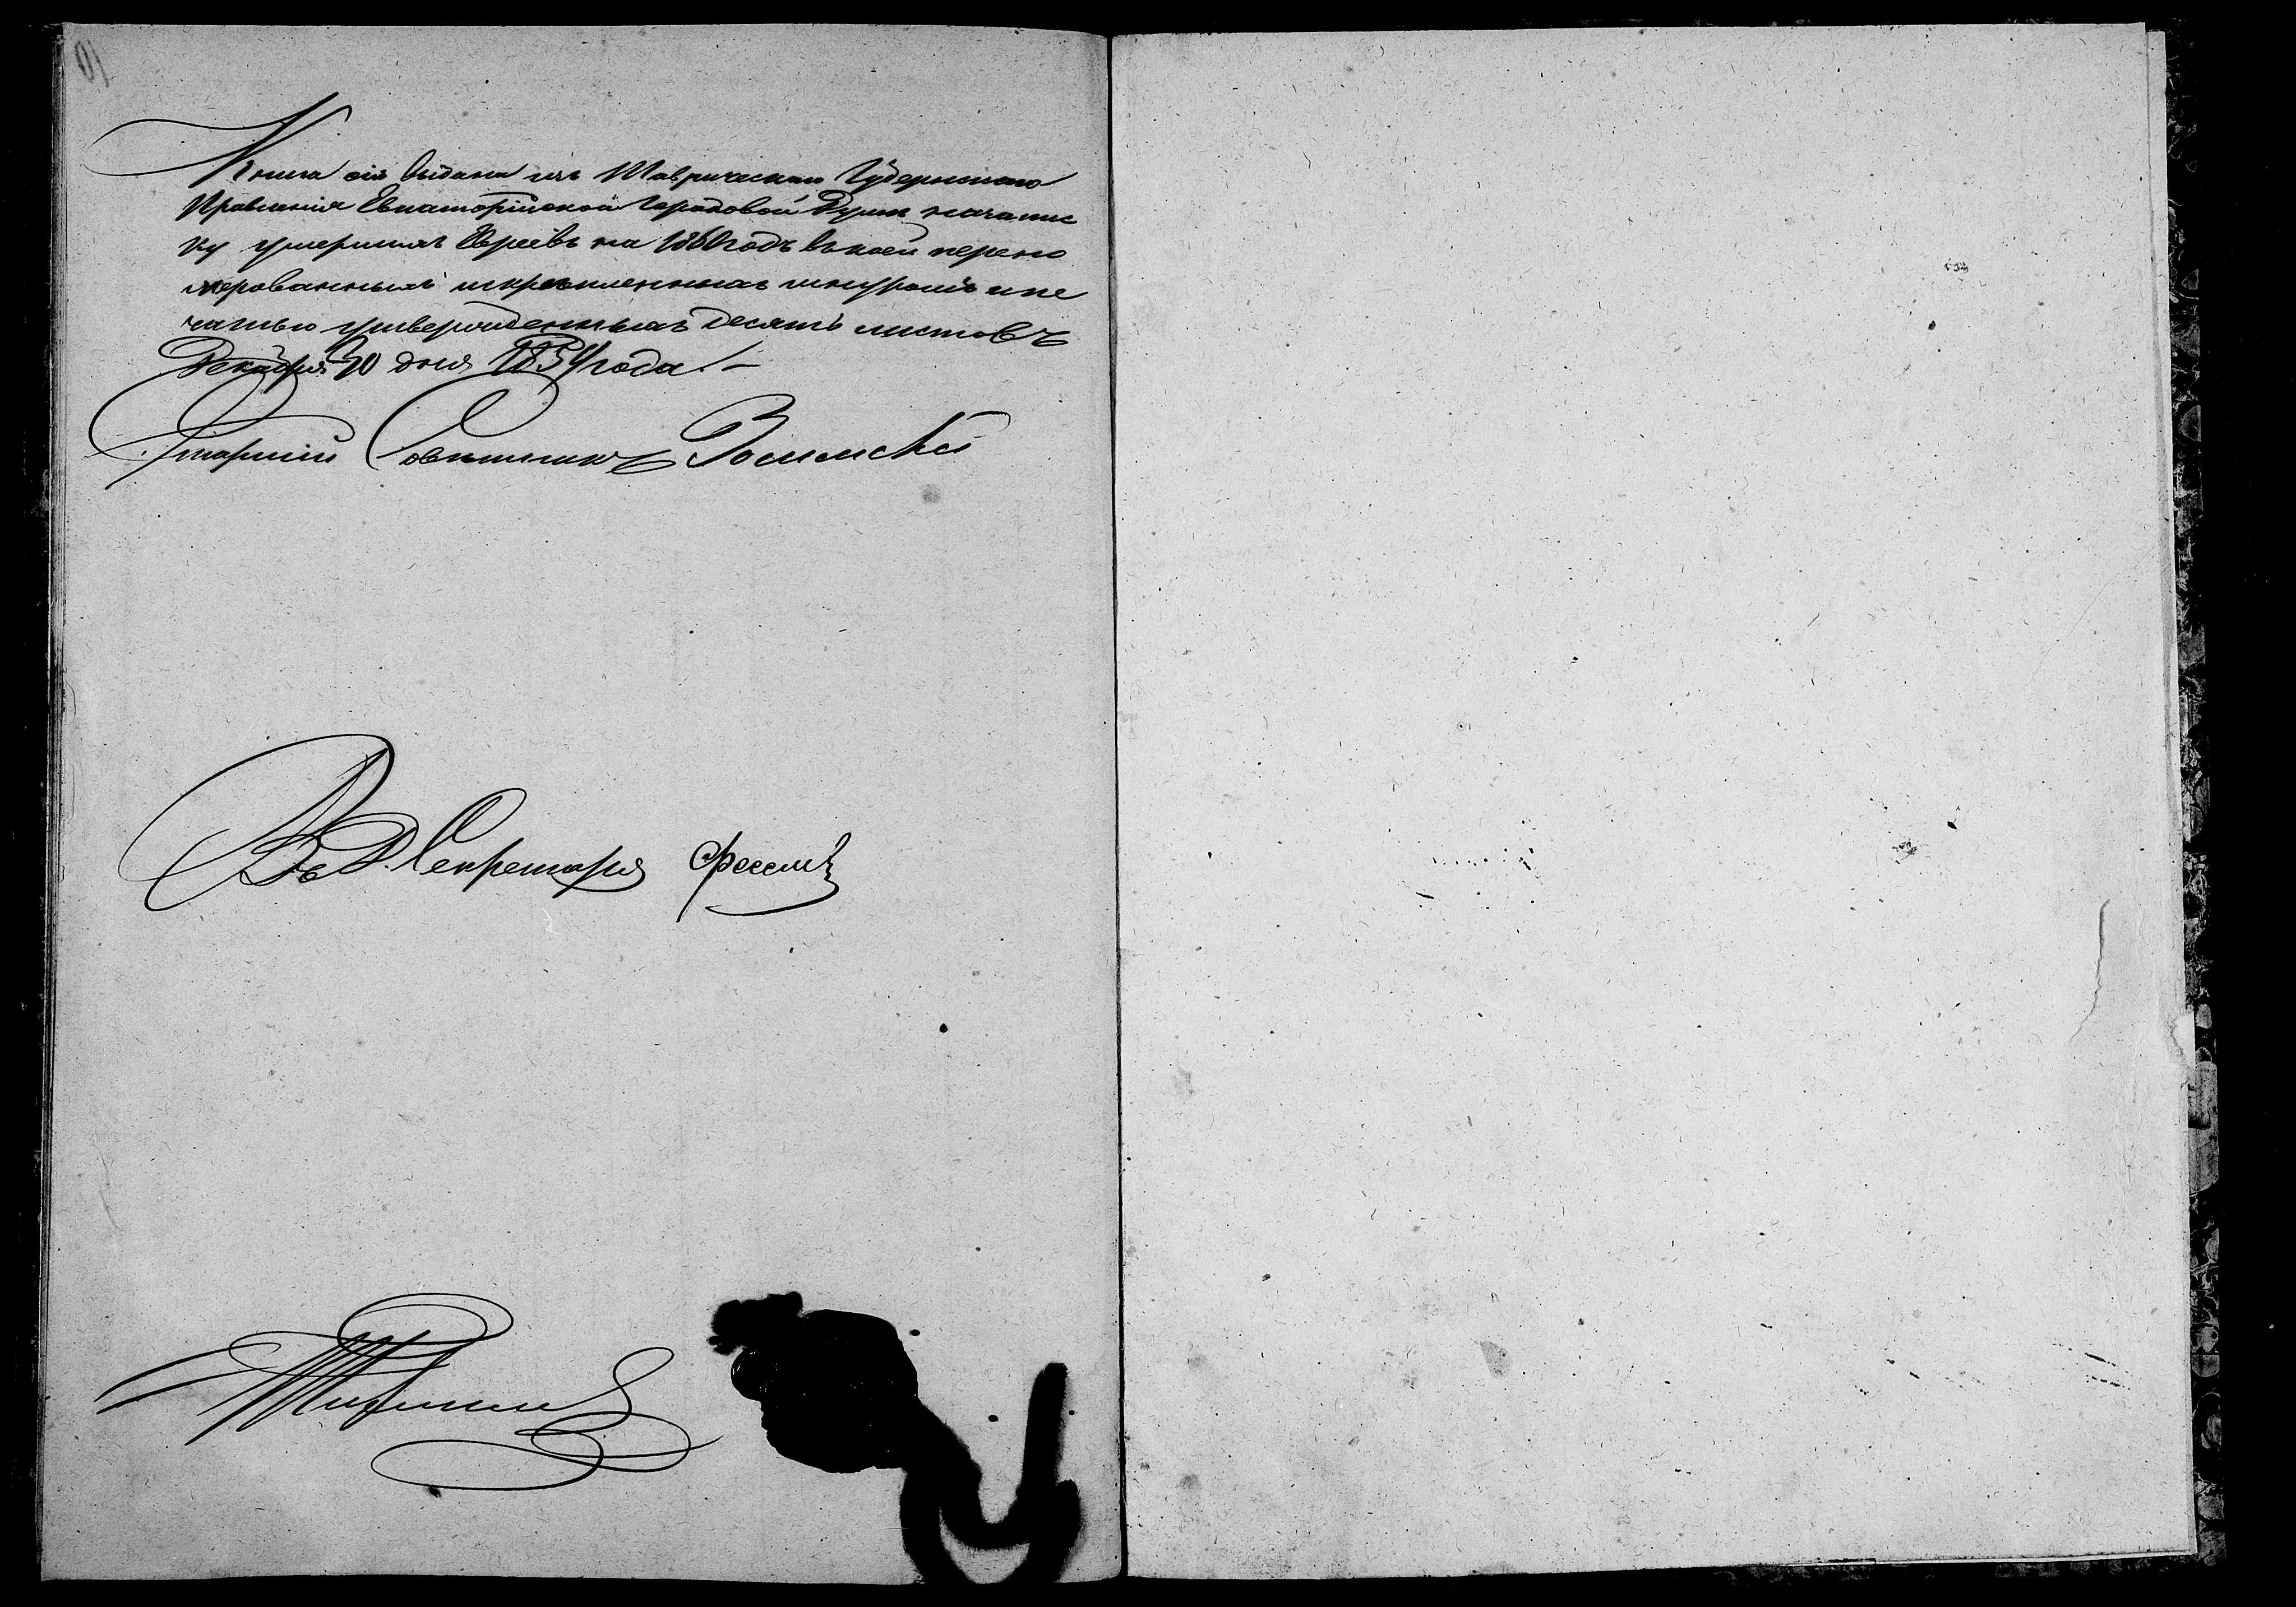 Книга сія выдана изъ Таврическаго Губернскаго
Правленія Евпаторійской Городовой Думѣ на запис
ку умершихъ Евреевъ на 1860 годъ въ коей перено
мерованныхъ искрѣпленныхъ шнуромъ ипе
чатью утвержденныхъ десять листовъ
Декабря 30 дня 1859 года.
Старшій Совѣтникъ
Секретаря